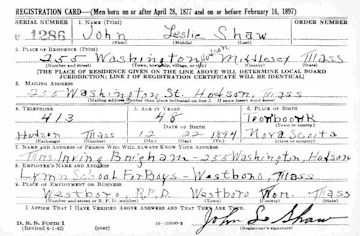 REGISTRATION CARD—(Men born on or after April 28, 1877 and on or before February 16, 1897)
SERIAL NUMBER 1. NAME (Print) ORDER NUMBER
U 1286 John Leslie Shaw
(First) (Middle) (Last)
2. PLACE OF RESIDENCE (Print)
255 Washington Hudson Middlesex Mass
(Number and street) (Town, township, village, or city) (County) (State)
[THE PLACE OF RESIDENCE GIVEN ON THE LINE ABOVE WILL DETERMINE LOCAL BOARD
JURISDICTION; LINE 2 OF REGISTRATION CERTIFICATE WILL BE IDENTICAL]
3. MAILING ADDRESS
255 Washington St. Hudson, Mass
(Mailing address if other than place indicated on line 2. If same insert word same)
4. TELEPHONE 5. AGE IN YEARS 6. PLACE OF BIRTH
413 48
DATE OF BIRTH
Hudson Mass 12 22 1894 Nova Scotia
7. NAME AND ADDRESS OF PERSON WHO WILL ALWAYS KNOW YOUR ADDRESS
Mrs Irving Brigham - 255 Washington, Hudson
8. EMPLOYER'S NAME AND ADDRESS
Lyman School For Boys - Westboro, Mass
9. PLACE OF EMPLOYMENT OR BUSINESS
Westboro, R.F.D. Westboro Wor. Mass
(Number and street or R. F. D. number) (Town) (County) (State)
I AFFIRM THAT I HAVE VERIFIED ABOVE ANSWERS AND THAT THEY ARE TRUE.
D. S. S. Form 1
(Revised 4-1-42) (over)
John L Shaw